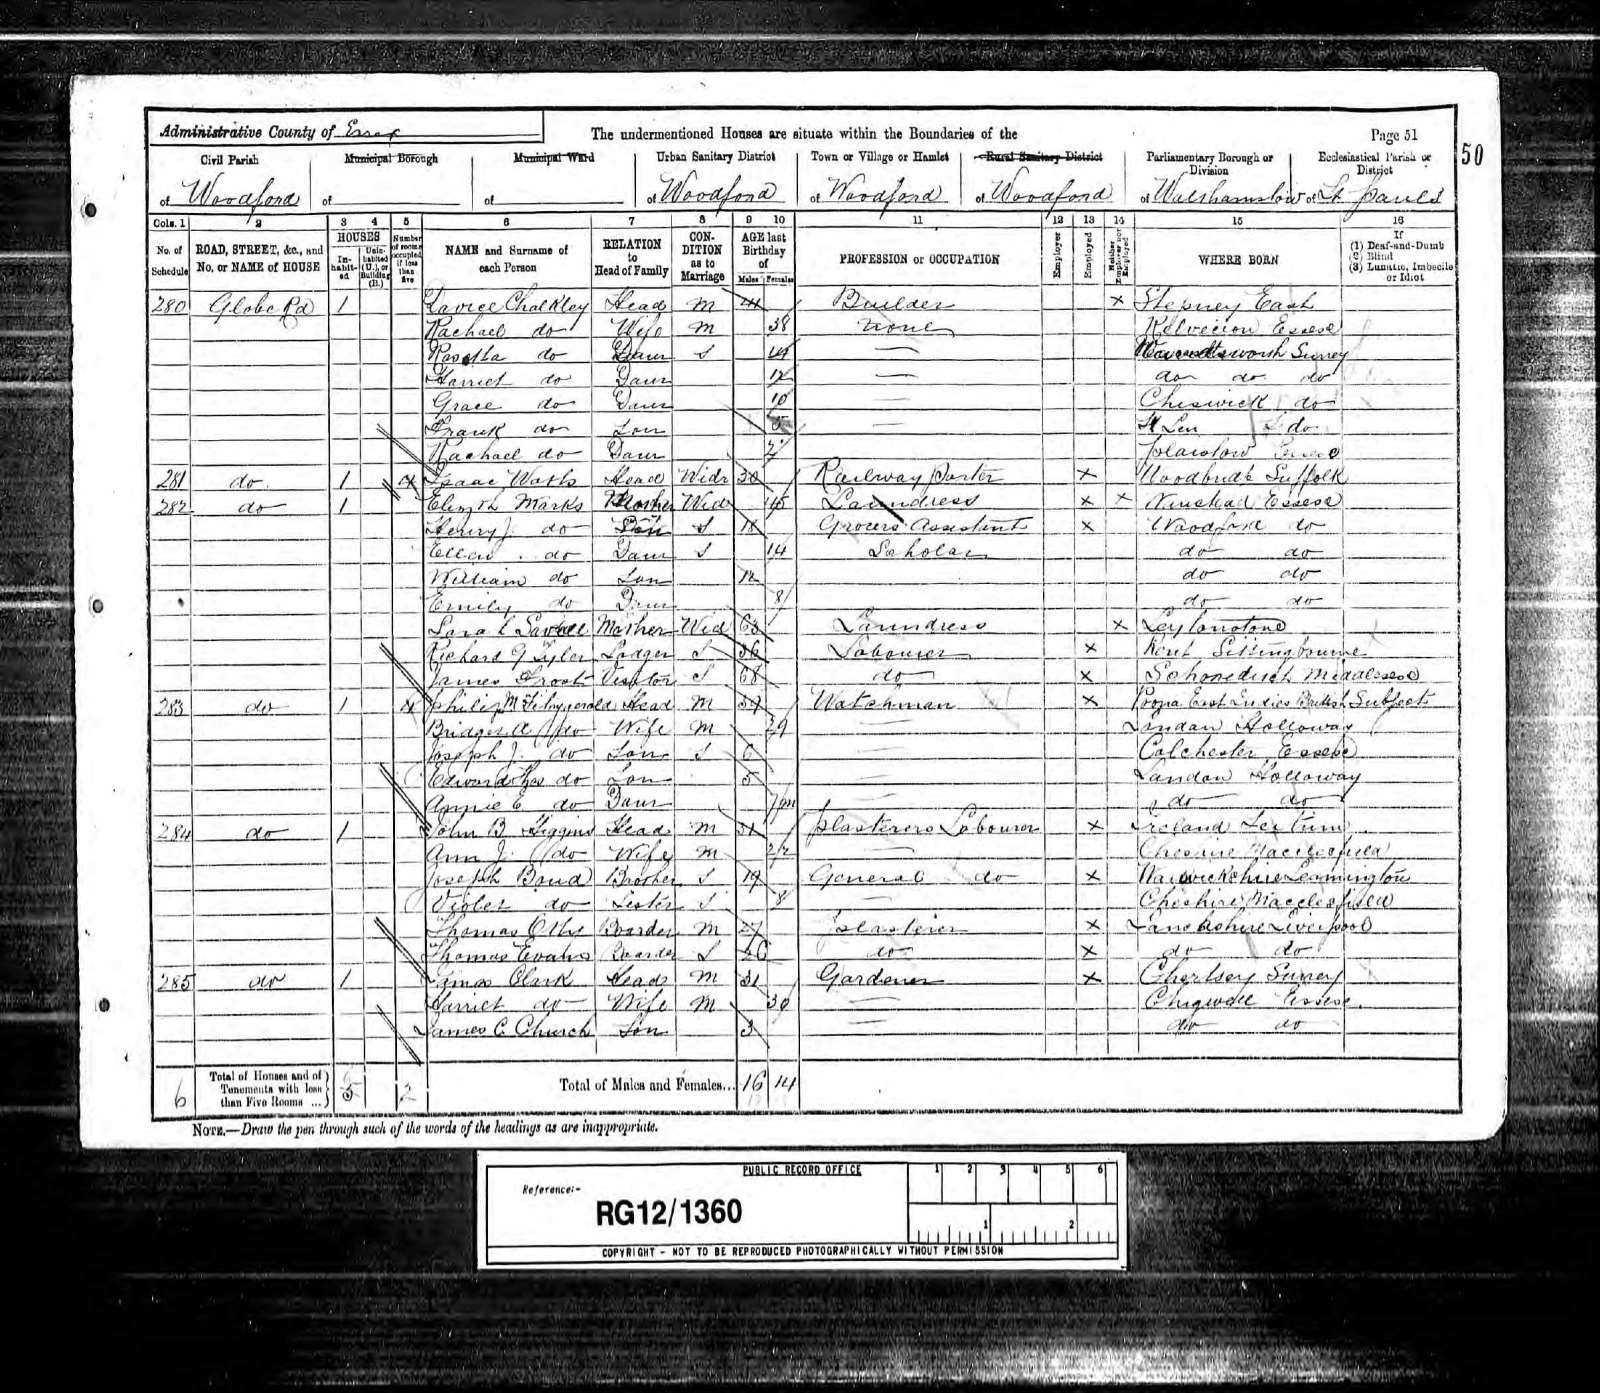 Administrative County of Essex
The undermentioned Houses are situate within the Boundaries of the
Page 51
50
Civil Parish
Municipal Borough
Municipal Ward
Urban Sanitary District
Town or Village or Hamlet
Rural Sanitary District
Parliamentary Borough or Division
Ecclesiastical Parish or District
of Woodford
of
of
of Woodford
of Woodford
of Woodford
of Walthamstow
of St Pauls
Cols. 1 2 3 4 5 6 7 8 9 10 11 12 13 14 15 16
No. of Schedule
ROAD, STREET, &c., and No. or NAME of HOUSE
HOUSES
In-habit-ed
Unin-habited (U.), or Building (B.)
Number of rooms occupied if less than five
NAME and Surname of each Person
RELATION to Head of Family
CON-DITION as to Marriage
AGE last Birthday of
Males
Females
PROFESSION or OCCUPATION
Employer
Employed
Neither Employer nor Employed
WHERE BORN
If
(1) Deaf-and-Dumb
(2) Blind
(3) Lunatic, Imbecile or Idiot
280 Globe Rd 1 Chalkley Head M 41 Builder x Stepney East
Rachael do Wife M 38 none Essex
do Daur S 14 Surrey
Harriet do Daur 12 do do do
Grace do Daur 10 Chiswick do
Frank do Son do
Rachael do Daur 2 Plaistow
281 do 1 4 Isaac Head Widr 30 Railway Porter x Suffolk
282 do 1 Elizth Marks Mother Wid 45 Laundress x x Essex
Henry J. do Son S 18 Grocers Assistant x do
Ellen do Daur S 14 Scholar do do
William do Son 12 do do
Emily do Daur 8 do do
Mother Wid 63 Laundress x Leytonstone
Richard G Tyler Lodger S 36 Labourer x Kent Sittingbourne
James Frost Visitor S 68 do x Middlesex
283 do 1 4 Philip M Fitzgerald Head M 39 Watchman x Poona East Indies British Subject
do Wife M 29 London Holloway
Joseph J. do Son S 6 Colchester Essex
do Son 5 London Holloway
Annie E do Daur 7m do do
284 do 1 John B Higgins Head M 31 Plasterers Labourer x Ireland
Ann J. do Wife M 22 Cheshire Macclesfield
Joseph Bond Brother S 19 General do x Warwickshire Leamington
Violet do Sister S 8 Cheshire Macclesfield
Thomas Boarder M 27 Plasterer x Lancashire Liverpool
Thomas Evans Boarder S 26 do x do do
285 do 1 James Clark Head M 31 Gardener x Chertsey Surrey
Harriet do Wife M 30 Chigwell Essex
James C Church Son 3 do do
6
Total of Houses and of Tenements with less than Five Rooms ...
5
2
Total of Males and Females...
16 14
NOTE.—Draw the pen through such of the words of the headings as are inappropriate.
PUBLIC RECORD OFFICE
1 2 3 4 5 6
Reference:-
RG12/1360
1 2
COPYRIGHT - NOT TO BE REPRODUCED PHOTOGRAPHICALLY WITHOUT PERMISSION